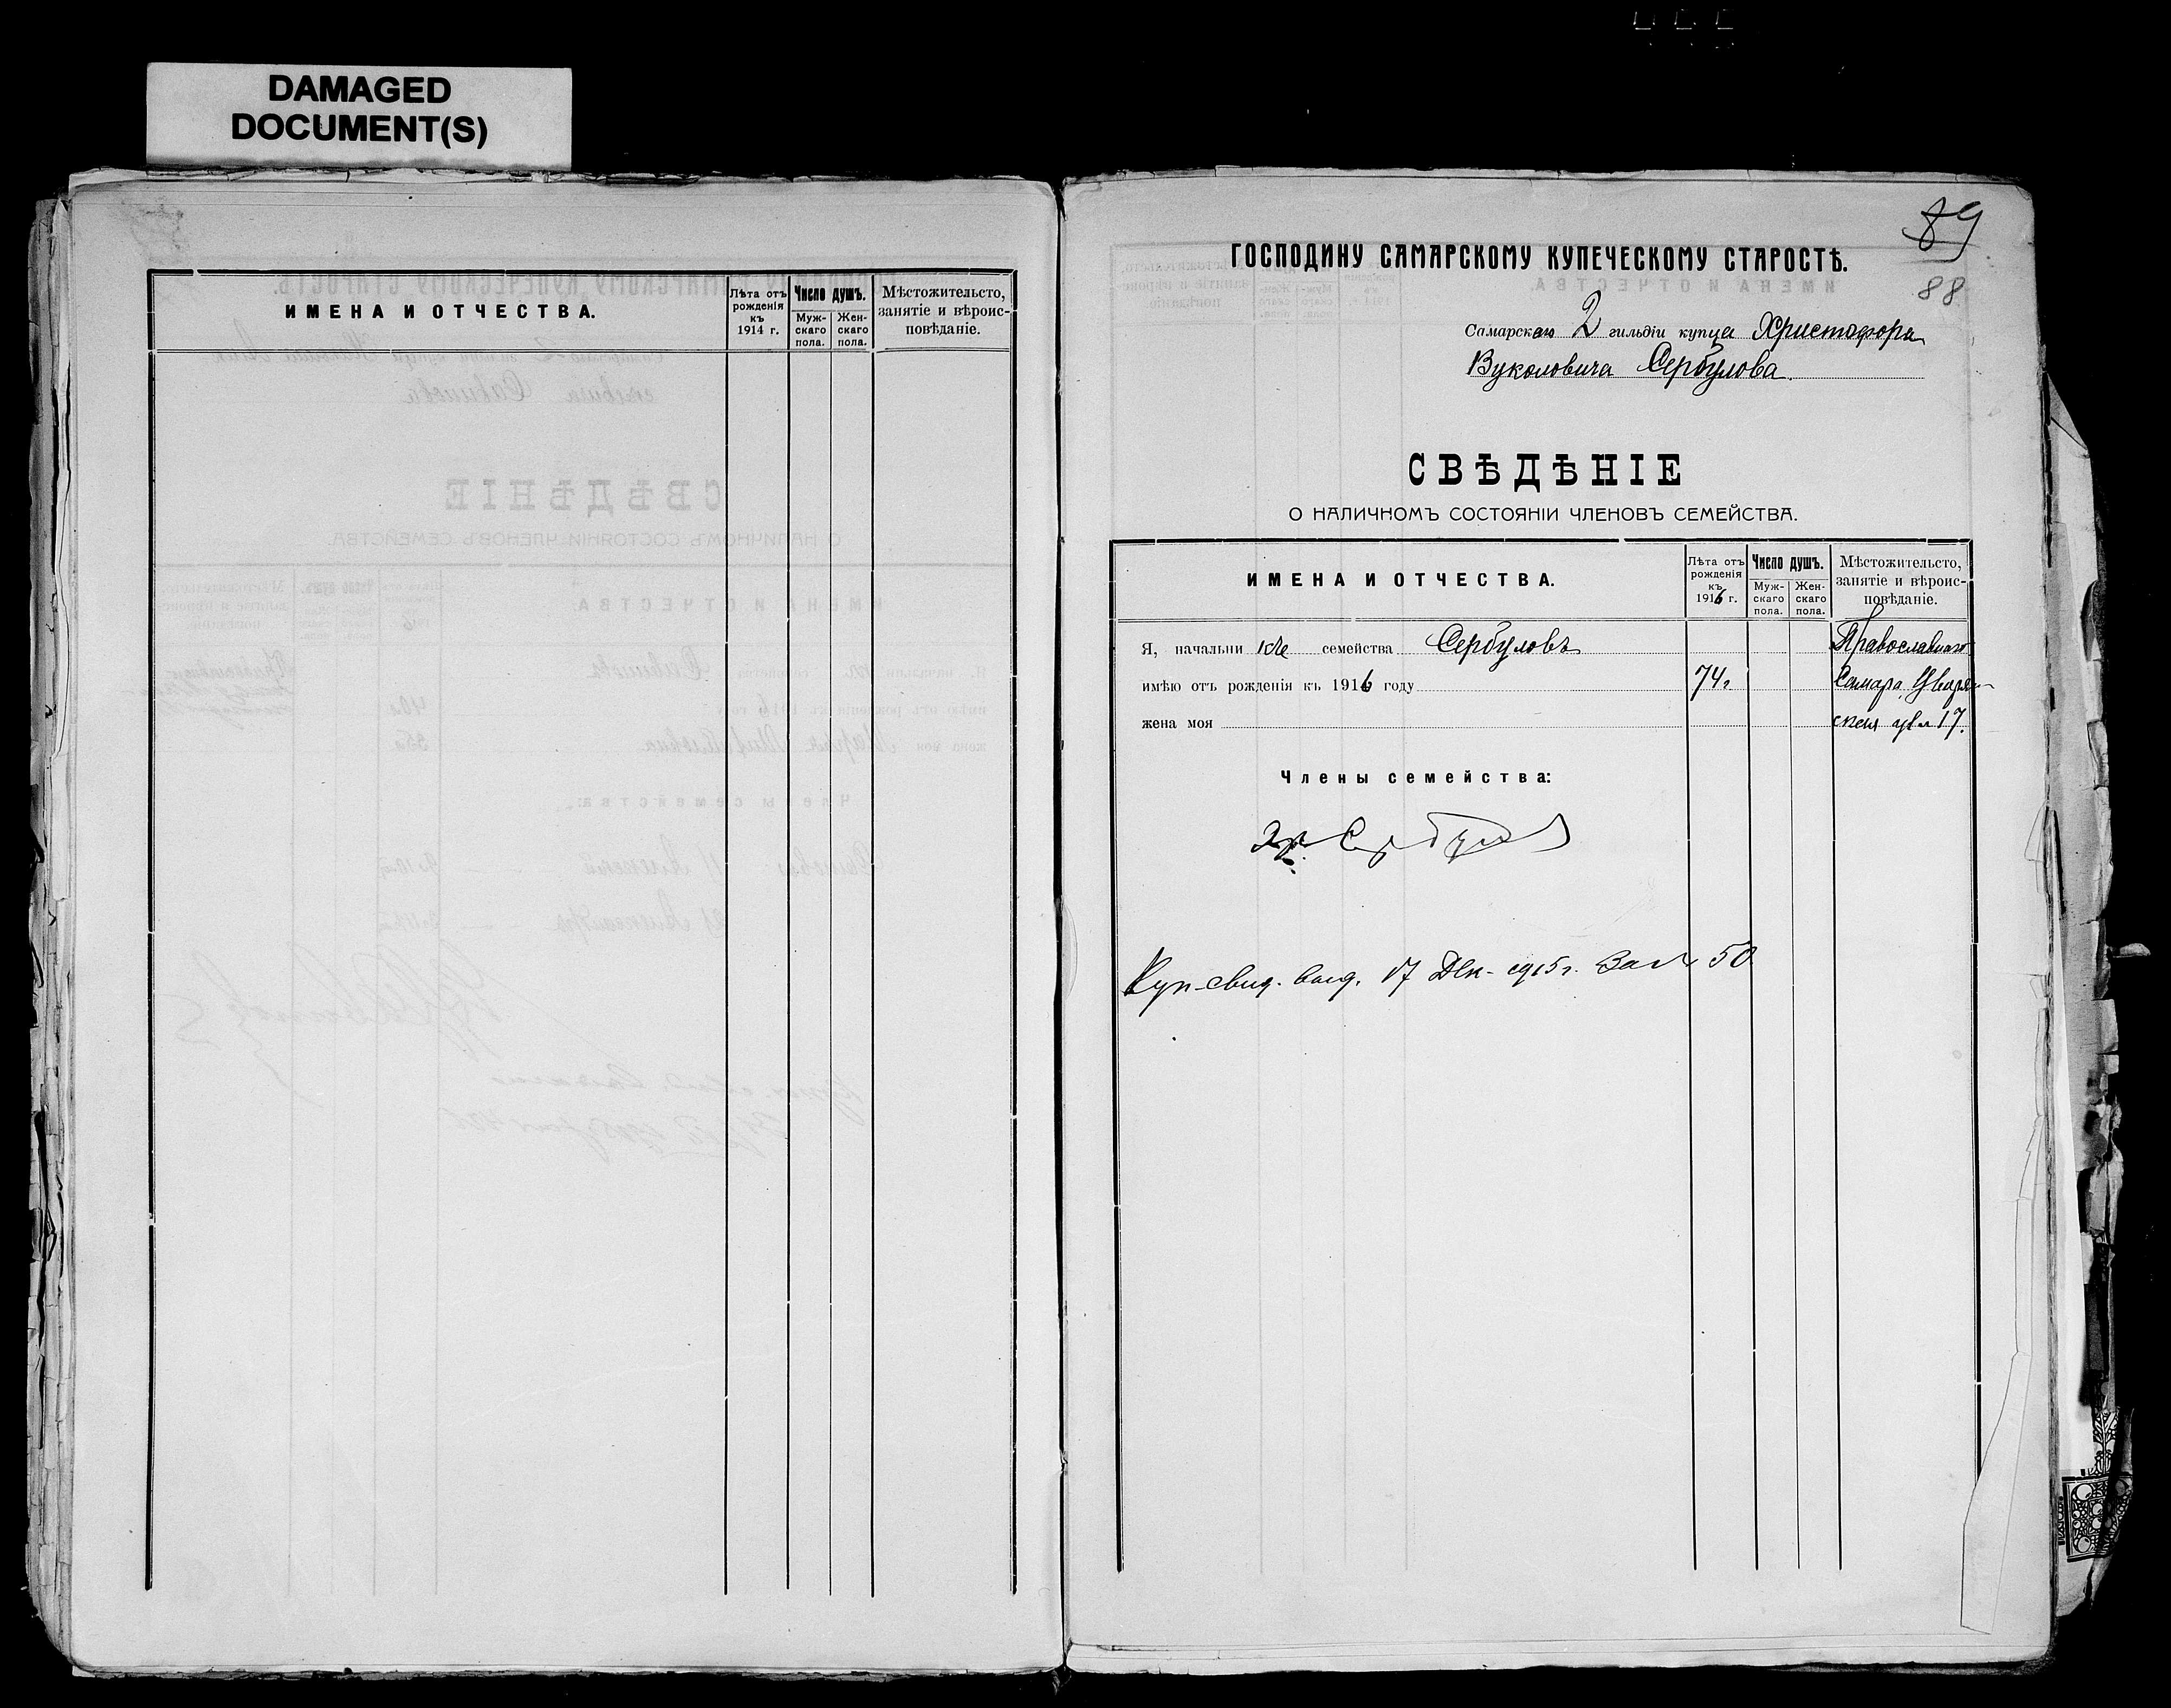 DAMAGED
DOCUMENT(S)
ИМЕНА И ОТЧЕСТВА.
Лѣта отъ рожденія къ 1914 г.
Число душъ.
Муж-скаго пола.
Жен-скаго пола.
Мѣстожительсто, занятіе и вѣроис-повѣданіе.
89
88
ГОСПОДИНУ САМАРСКОМУ КУПЕЧЕСКОМУ СТАРОСТѢ.
Самарскаго 2 гильдіи купца Христофора
Вуколовича Сербулова.
СВѢДѢНІЕ
О НАЛИЧНОМЪ СОСТОЯНІИ ЧЛЕНОВЪ СЕМЕЙСТВА.
ИМЕНА И ОТЧЕСТВА.
Лѣта отъ рожденія къ 1916 г.
Число душъ.
Муж-скаго пола.
Жен-скаго пола.
Мѣстожительсто, занятіе и вѣроис-повѣданіе.
Я, начальни семейства Сербуловъ Православнаго
имѣю отъ рожденія къ 1916 году 74 г. Самара, Дворян-
жена моя ская ул 17.
Члены семейства:
Хр. Сербулов
Куп. свид. выд. 17 Дек. 1915 г. За № 50